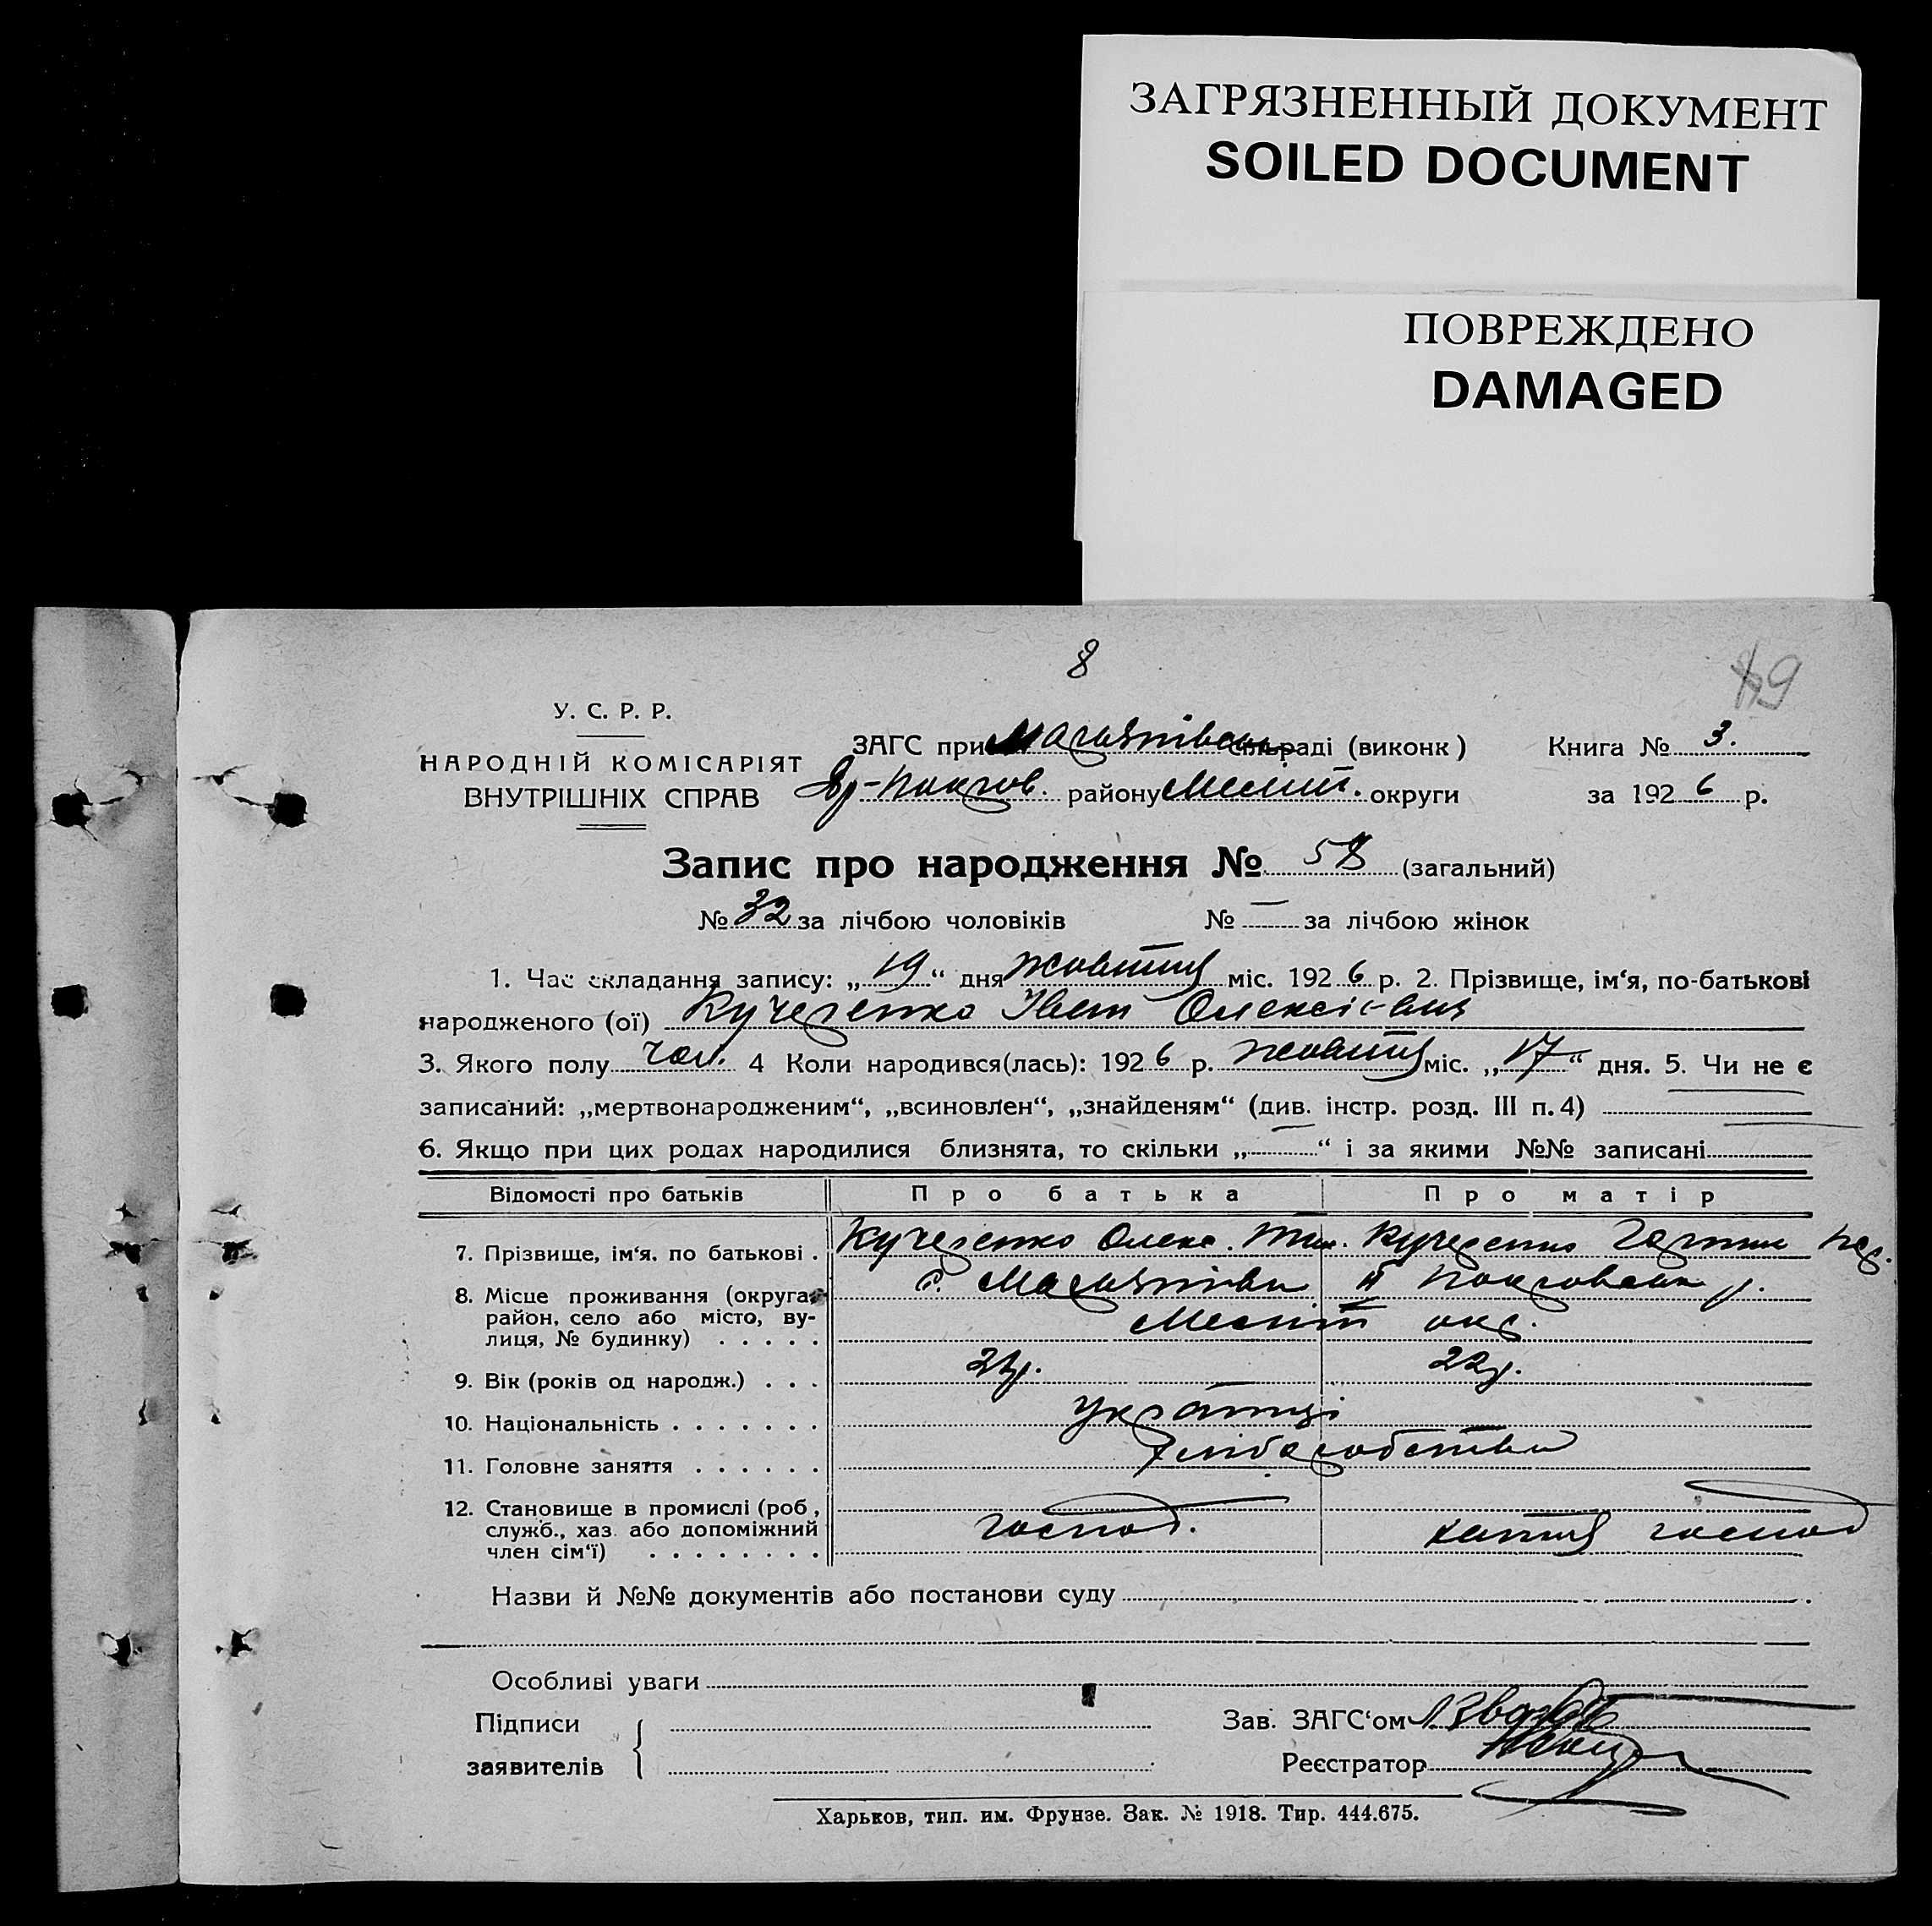 ЗАГРЯЗНЕННЫЙ ДОКУМЕНТ
SOILED DOCUMENT
ПОВРЕЖДЕНО
DAMAGED
8
У. С. Р. Р.
НАРОДНІЙ КОМІСАРІЯТ
ВНУТРІШНІХ СПРАВ
ЗАГС при сільраді (виконк)
Книга № 3.
району Меліт. округи
за 1926 р.
Запис про народження № 58 (загальний)
№ 32 за лічбою чоловіків № — за лічбою жінок
1. Час складання запису: „19“ дня жовтня міс. 1926 р. 2. Прізвище, ім‘я, по-батькові
народженого (ої) Кучеренко Іван Олексієвич
3. Якого полу чол. 4 Коли народився(лась): 1926 р. жовтня міс. „17“ дня. 5. Чи не є
записаний: „мертвонародженим“, „всиновлен“, „знайденям“ (див. інстр. розд. III п. 4)
6. Якщо при цих родах народилися близнята, то скільки „—“ і за якими №№ записані
Відомості про батьків Про батька Про матір
7. Прізвище, ім‘я. по батькові . Кучеренко Олекс. Кучеренко
8. Місце проживання (округа,
район, село або місто, ву-
лиця, № будинку) . . . . . Меліт окр.
9. Вік (років од народж.) . . . 22р.
10. Національність . . . . . . . українці
11. Головне заняття . . . . . . хліборобство
12. Становище в промислі (роб,
служб., хаз. або допоміжний
член сім‘ї) . . . . . . . . господ. хатня господ
Назви й №№ документів або постанови суду
Особливі уваги
Підписи
заявителів
Зав. ЗАГС‘ом
Реєстратор
Харьков, тип. им. Фрунзе. Зак. № 1918. Тир. 444.675.